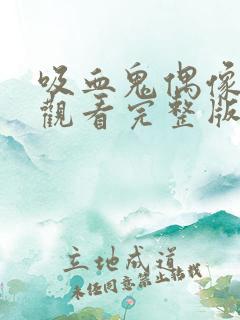 吸血鬼偶像
觀看完整版
立地成道
未经同意禁止转载